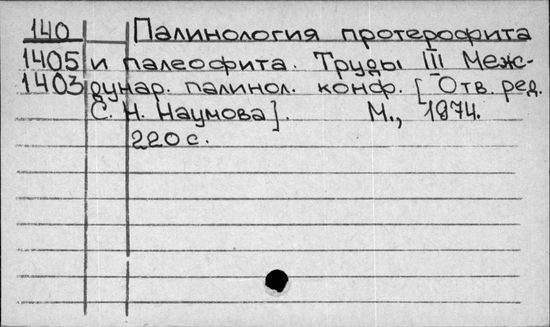 140 Палинология протерофита
1405 и палеофита. Труды III Меж-
1403 дунар. палинол. конф. [Отв. ред.
С. Н. Наумова]. М., 1974.
220 с.